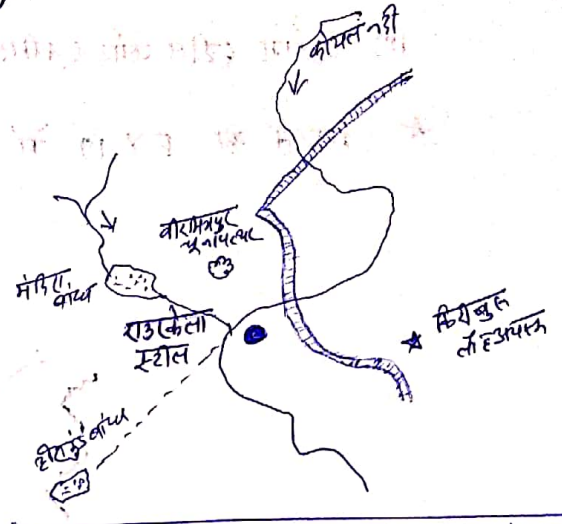 कोयल नदी
वीरमित्रपुर
चूनापत्थर
मंदिरा
बाँध
राउरकेला
स्टील
किरीबुरु
लौहअयस्क
हीराकुंड बाँध